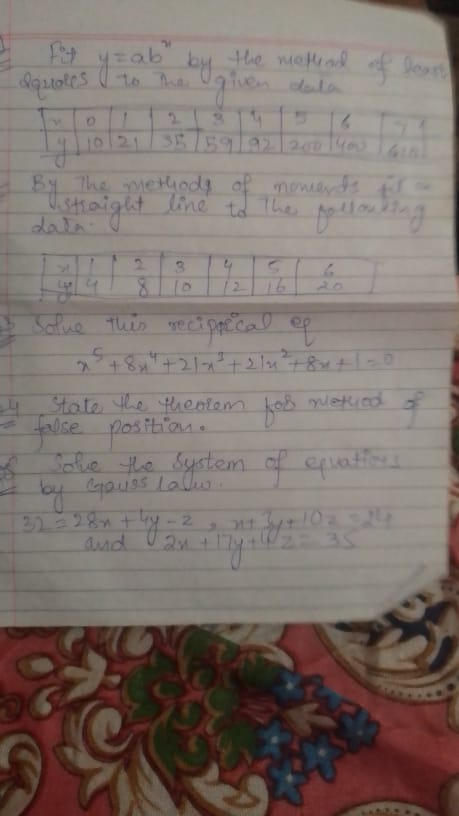 Fit y = ab^x by the method of least
squares to the given data
x 0 1 2 3 4 5 6 7
y 10 21 35 59 92 200 400 610
By the methods of moments fit a
straight line to the following
data.
x 1 2 3 4 5 6
y 4 8 10 12 16 20
Solve this recipprical eq
x^5 + 8x^4 + 21x^3 + 21x^2 + 8x + 1 = 0
4 State the theorem for method of
false position.
Solve the system of equations
by Gauss law.
32 = 28x + 4y - z, x + 3y + 10z = 24
and 2x + 17y + 4z = 35